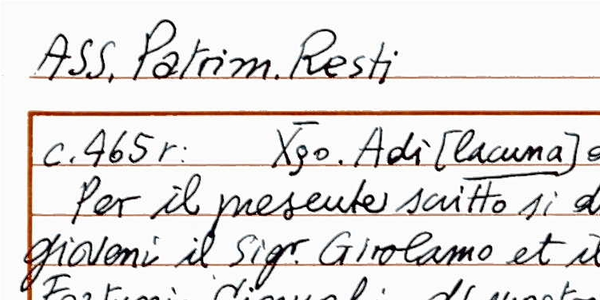 ASS, Patrim. Resti
c. 465 r: Xgo. Adi [lacuna]
Per il presente scritto si d
gioveni il Sigr. Girolamo et il